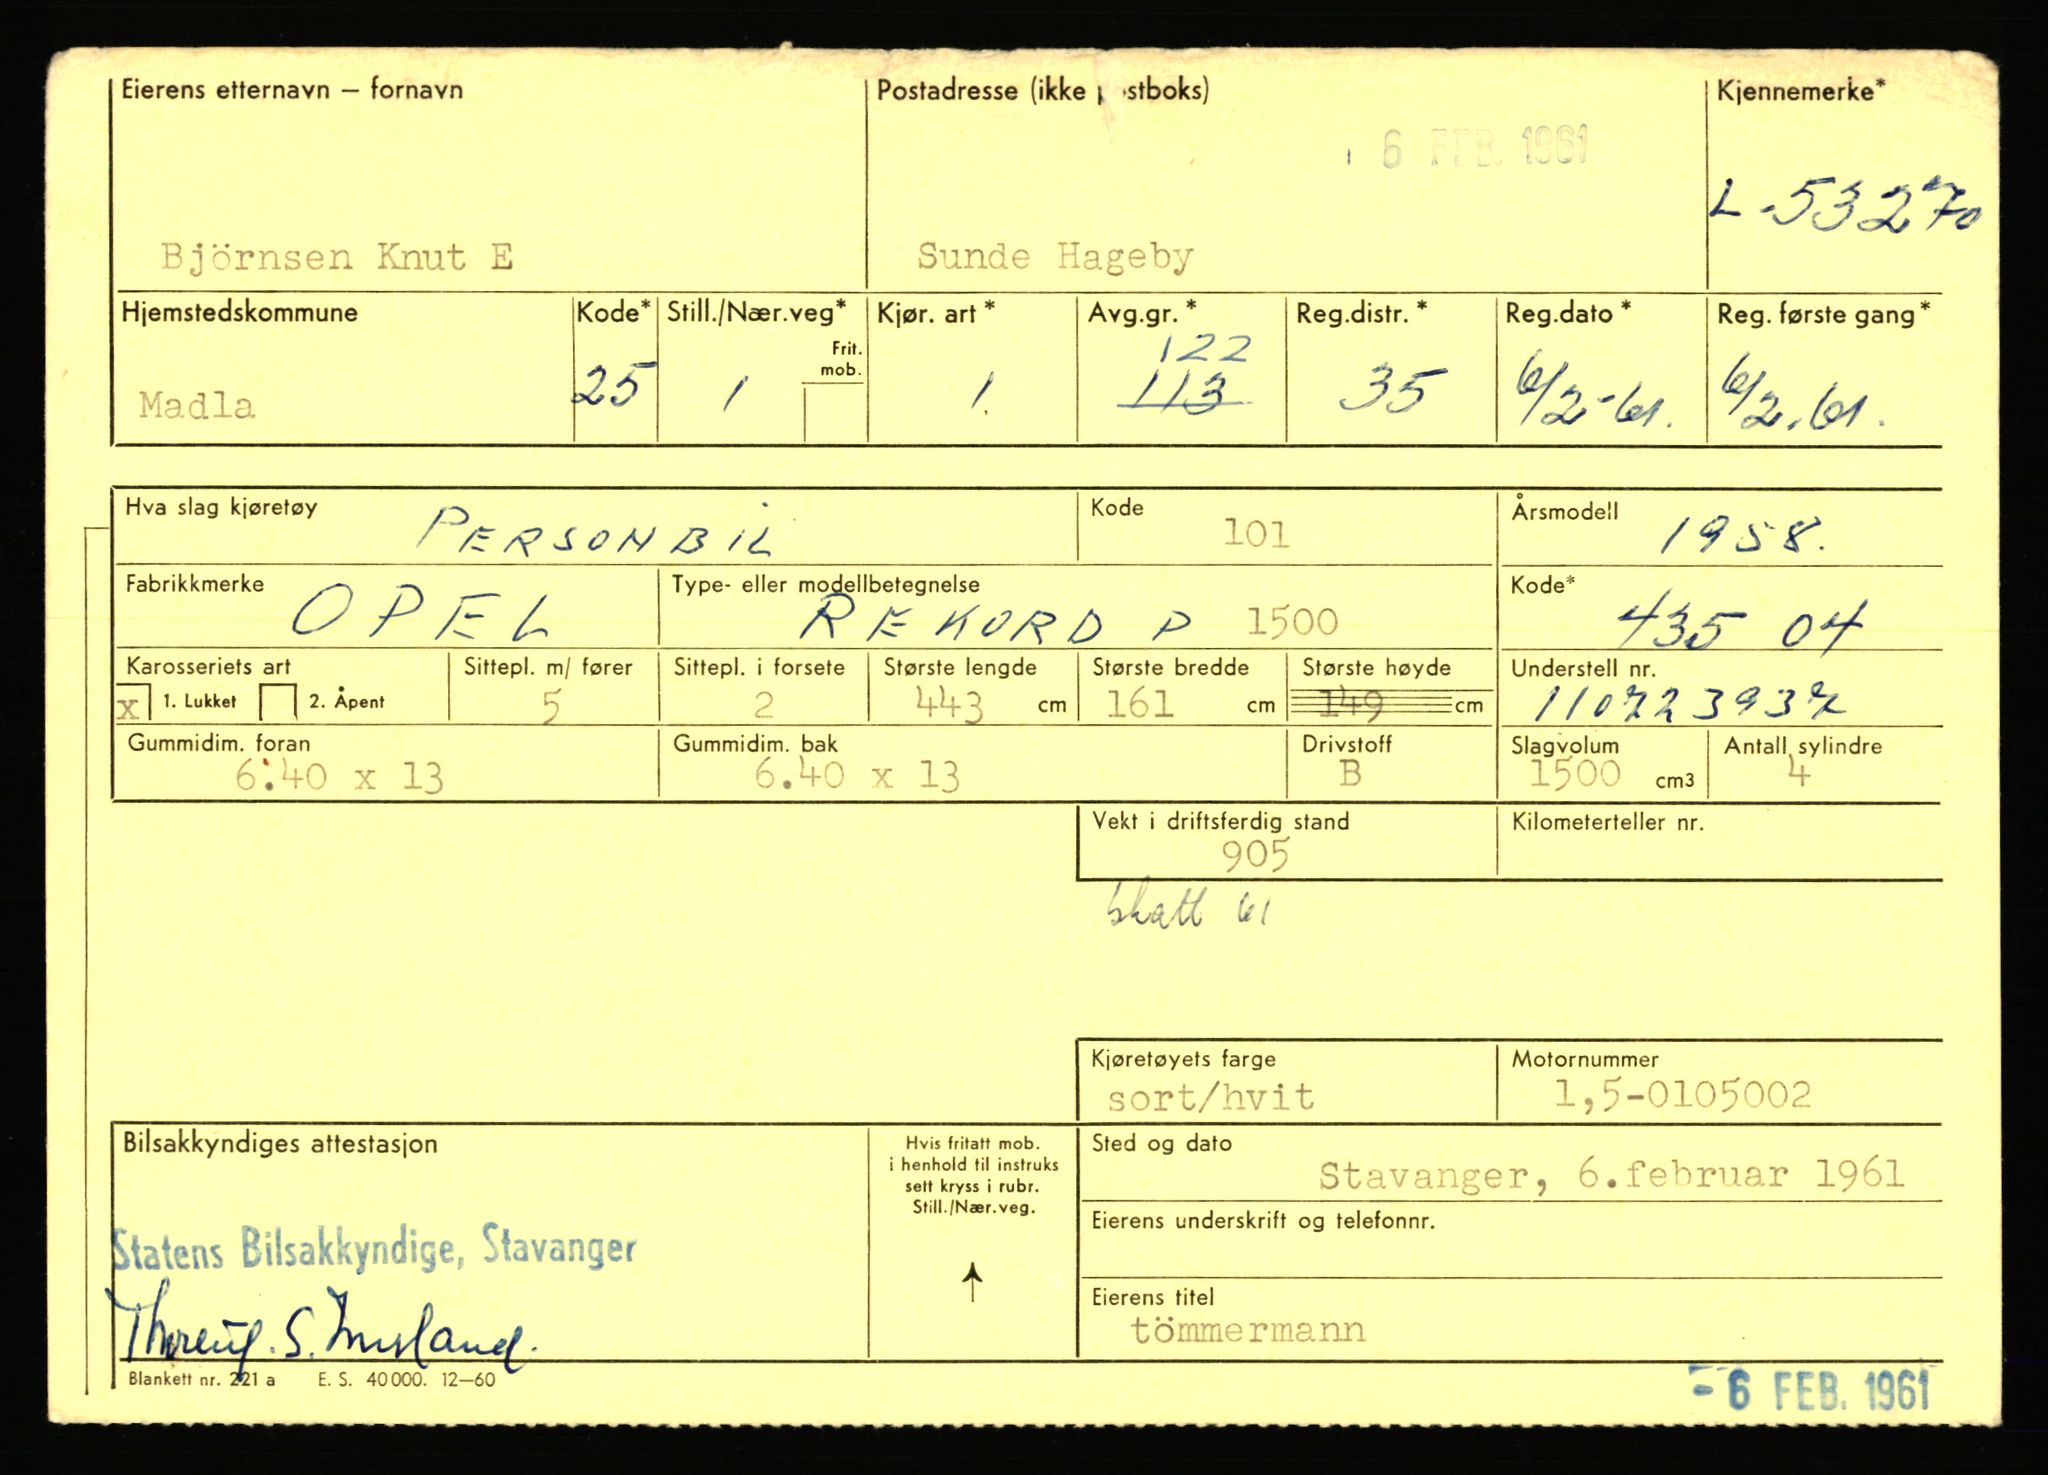 Eierens etternavn – fornavn Postadresse (ikke stboks) Kjennemerke*
6 FEB. 1961
L-53270
Björnsen Knut E Sunde Hageby
Hjemstedskommune Kode* Still./Nær.veg* Kjør. art* Avg.gr.* Reg.distr.* Reg.dato* Reg. første gang*
Frit. mob.
122
Madla 25 1 1. 113 35 6/2-61. 6/2.61.
Hva slag kjøretøy PERSONBIL Kode 101 Årsmodell 1958.
Fabrikkmerke OPEL Type- eller modellbetegnelse REKORD P 1500 Kode* 435 04
Karosseriets art Sittepl. m/ fører Sittepl. i forsete Største lengde Største bredde Største høyde Understell nr.
x 1. Lukket 2. Åpent 5 2 443 cm 161 cm 149 cm 110723937
Gummidim. foran Gummidim. bak Drivstoff Slagvolum Antall sylindre
6.40 x 13 6.40 x 13 B 1500 cm3 4
Vekt i driftsferdig stand Kilometerteller nr.
905
skatt 61
Kjøretøyets farge Motornummer
sort/hvit 1,5-0105002
Bilsakkyndiges attestasjon
Hvis fritatt mob.
i henhold til instruks
sett kryss i rubr.
Still./Nær.veg.
Sted og dato
Stavanger, 6.februar 1961
Eierens underskrift og telefonnr.
Statens Bilsakkyndige, Stavanger
Eierens titel
tömmermann
Blankett nr. 221 a E. S. 40 000. 12–60
- 6 FEB. 1961